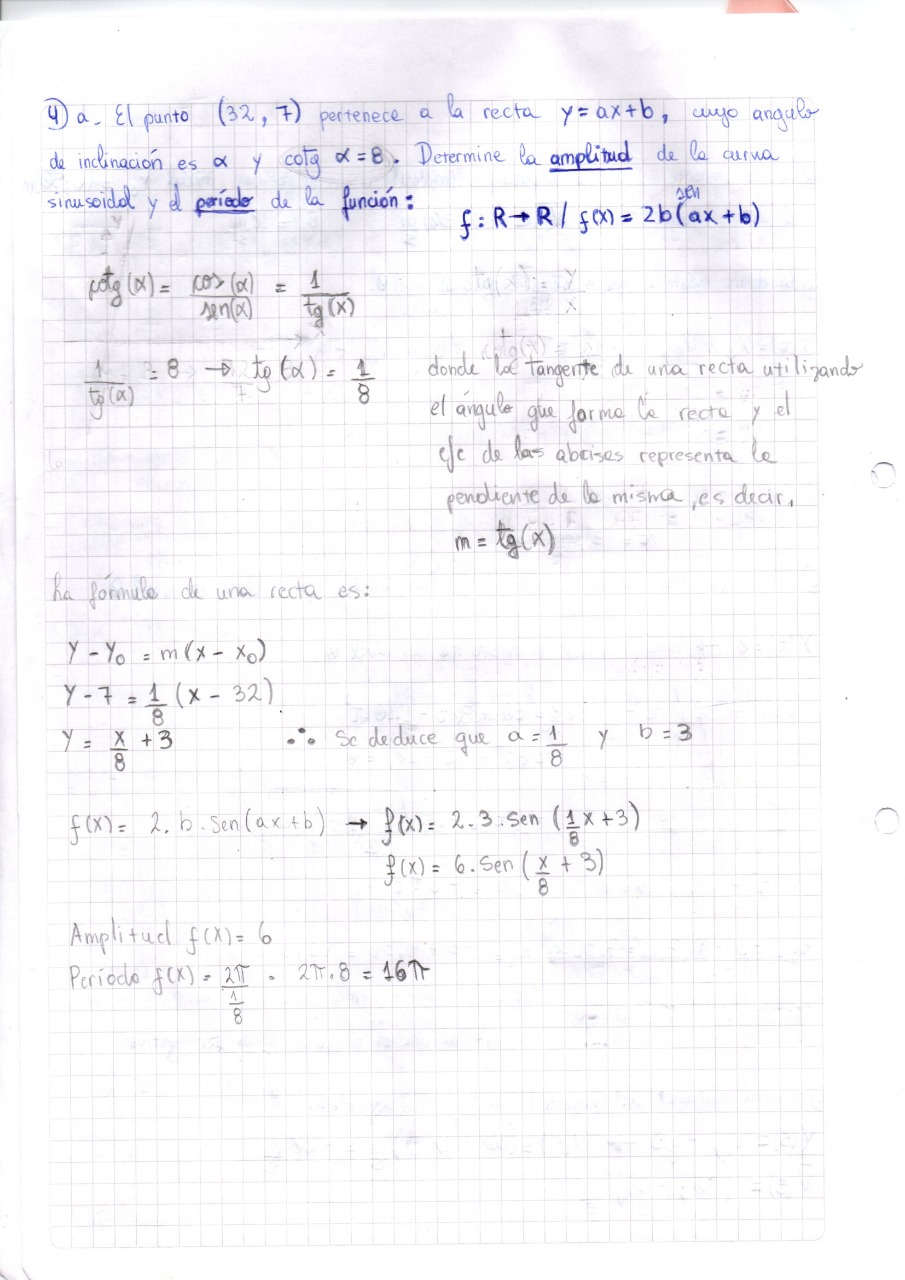 4) a- El punto (32, 7) pertenece a la recta y = ax+b, cuyo angulo
de inclinación es α y cotg α = 8. Determine la amplitud de la curva
sinusoidal y el período de la función:
f: R → R / f(x) = 2b sen(ax+b)
cotg(α) = cos(α)/sen(α) = 1/tg(x)
1/tg(α) = 8 → tg(α) = 1/8
donde la tangente de una recta utilizando
el ángulo que forma la recta y el
eje de las abcisas representa la
pendiente de la misma, es decir,
m = tg(x)
La fórmula de una recta es:
Y - Y₀ = m(x - x₀)
Y - 7 = 1/8 (x - 32)
Y = x/8 + 3 ∴ Se deduce que a = 1/8 y b = 3
f(x) = 2. b. Sen(ax+b) → f(x) = 2.3. Sen (1/8 x + 3)
f(x) = 6. Sen (x/8 + 3)
Amplitud f(x) = 6
Período f(x) = 2π/(1/8) = 2π.8 = 16π